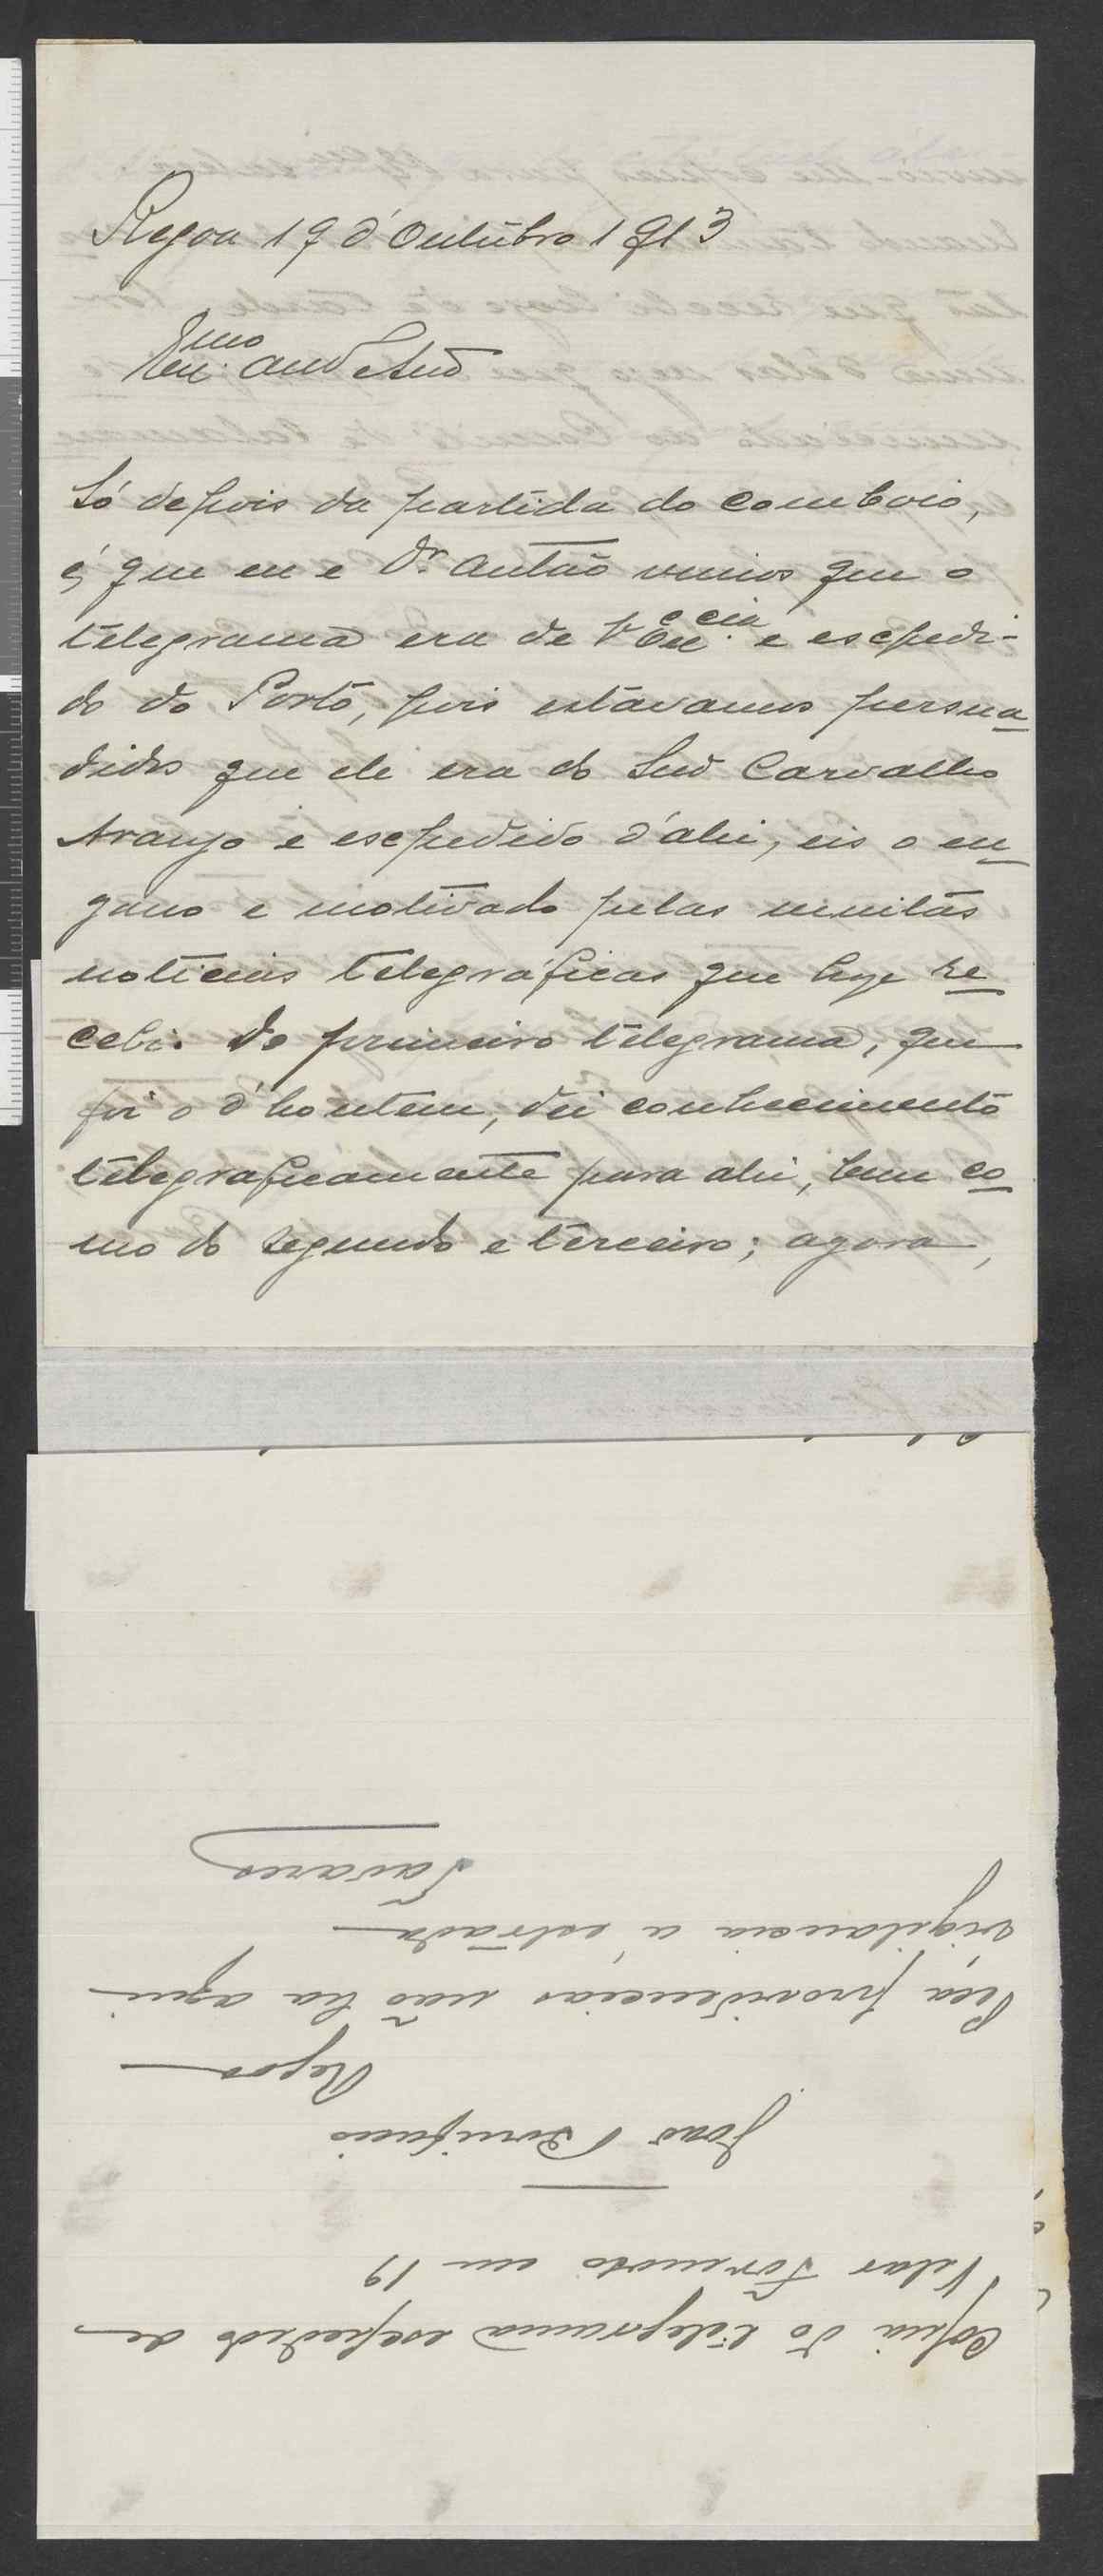 Regoa 19 d'Outubro 1913
Exmo
Só depois da partida do comboio,
é, que eu e Dr. Antão vimos que o
telegrama era de V. Excia e escpedi-
do do Porto, pois estávamos persua
didos que ele era do Snr Carvalho
Araujo e escpedido d'ahi, eis o en
gano e motivado pelas muitas
noticias telegráficas que hoje re
cebi. Do primeiro telegrama, que
foi o d'hontem, dei conhecimento
telegraficamente para ahi, bem co
mo do segundo e terceiro; agora,
Copia do telegrama escpedido de
Vilar Formoso em 19
João Bonifacio
Regoa
Peça providencias não ha aqui
vigilancia á estrada
Tavares